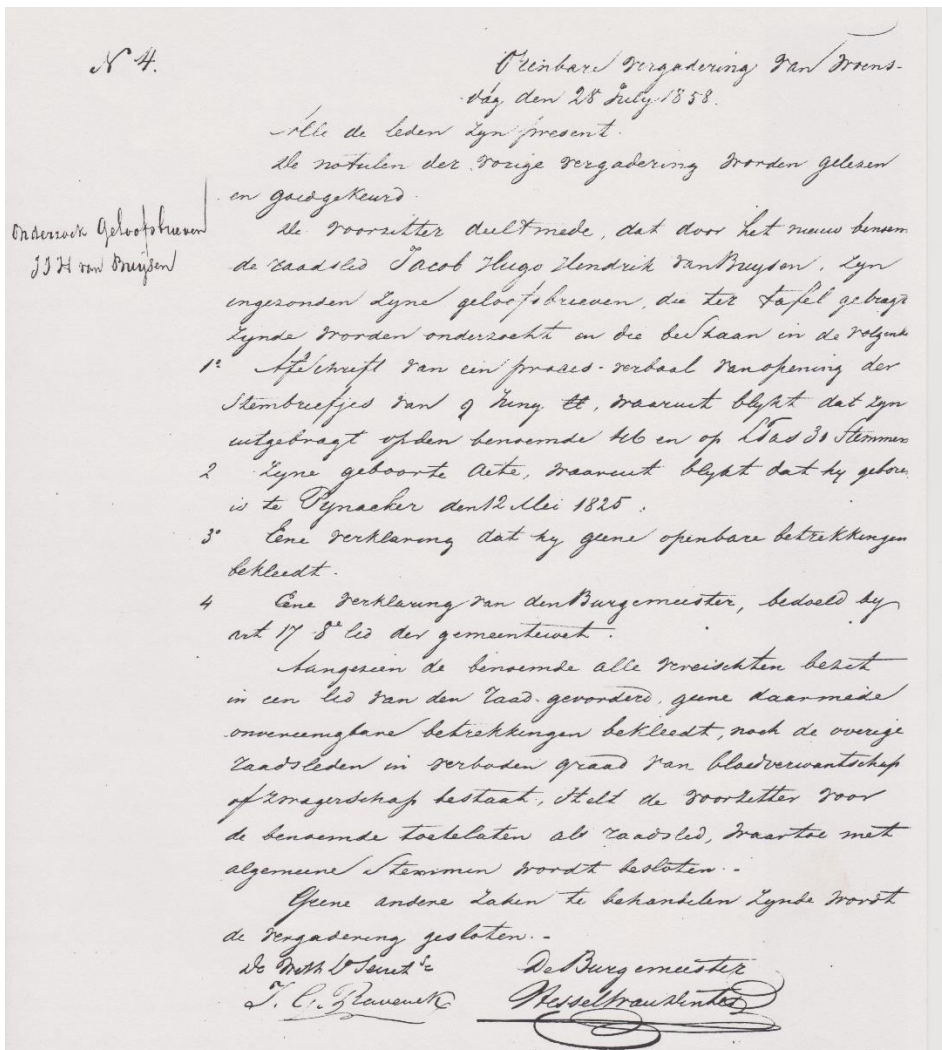 N 4.
Openbare vergadering van Woens-
dag den 28 July 1858.
Alle de leden zyn present.
De notulen der vorige vergadering worden gelezen
en goedgekeurd.
Onderzoek Geloofsbrieven
JJH van Buysen
De voorzitter deelt mede, dat door het nieuw benoem
de raadslid Jacob Hugo Hendrik van Buysen, zyn
ingezonden zyne geloofsbrieven, die ter tafel gebragt
zynde worden onderzocht en die bestaan in de volgende
1o Afschrift van een proces-verbaal van opening der
Stembriefjes van 9 Juny ll, waaruit blykt dat zyn
uitgebragt op den benoemde 46 en op 30 Stemmen
2 Zyne geboorte Acte, waaruit blykt dat hy geboren
is te Pynacker den 12 Mei 1825.
3o Eene verklaring dat hy geene openbare betrekkingen
bekleedt.
4 Eene verklaring van den Burgemeester, bedoeld by
art 17 8e lid der gemeentewet.
Aangezien de benoemde alle vereischten bezit
in een lid van den raad gevorderd, geene daarmede
onvereenigbare betrekkingen bekleedt, noch de overige
raadsleden in verboden graad van bloedverwantschap
of zwagerschap bestaat, stelt de voorzitter voor
de benoemde toetelaten als raadslid, waartoe met
algemeene Stemmen wordt besloten.-
Geene andere zaken te behandelen zynde wordt
de vergadering gesloten.-
De Weth Lo Secret
De Burgemeester